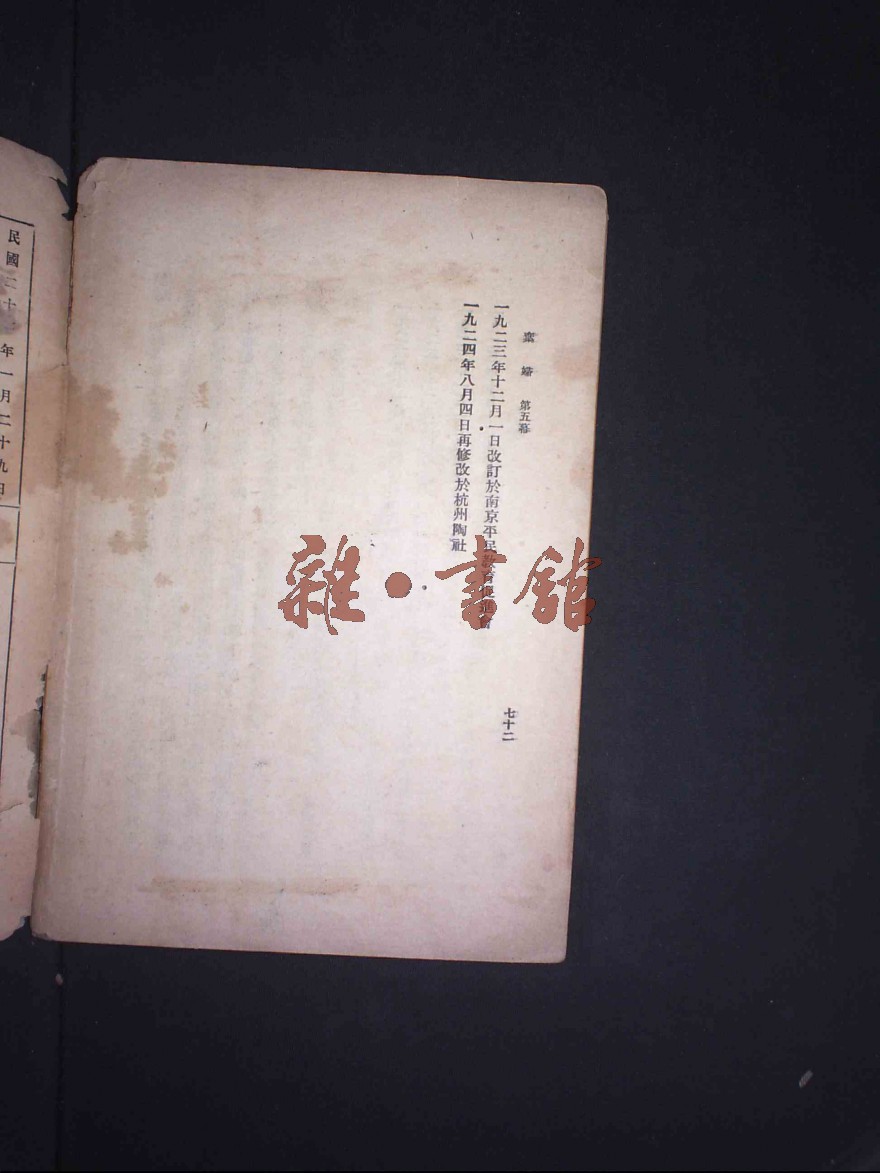 棄婦 第五幕
一九二三年十二月一日改訂於南京平民教育促進會
一九二四年八月四日再修改於杭州陶社
七十二
民國二十 年一月二十九日
雜·書館